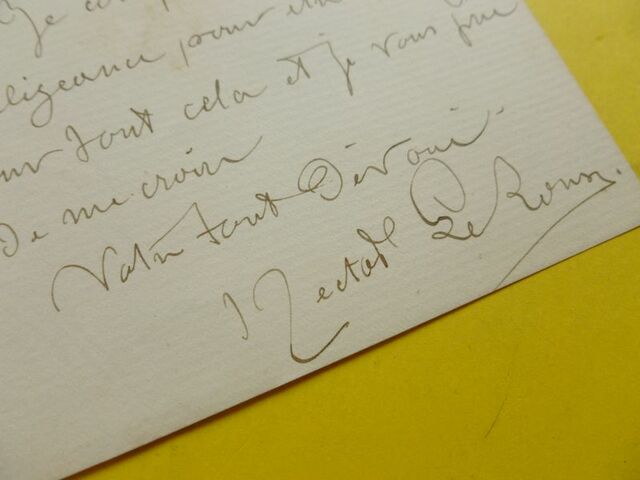 Je
pour
tout cela et je vous prie
de me croire
Votre tout Dévoué
Hector Le Roux